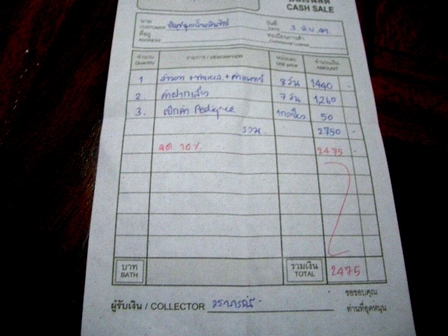 CASH SALE
นาม
CUSTOMER
วันที่
DATE 3
ที่อยู่
ADDRESS
จำนวน
QUANTITY
รายการ / DESCRIPTION
หน่วยละ
UNIT PRICE
จำนวนเงิน
AMOUNT
1 8 วัน 1440 -
2 ค่าฝากเลี้ยง 7 วัน 1260 -
3. Pedigree 50
รวม 2750 -
ลด 10% 2475 -
บาท
BATH
รวมเงิน
TOTAL
2475
ผู้รับเงิน / COLLECTOR วราภรณ์
ขอขอบคุณ
ท่านที่อุดหนุน